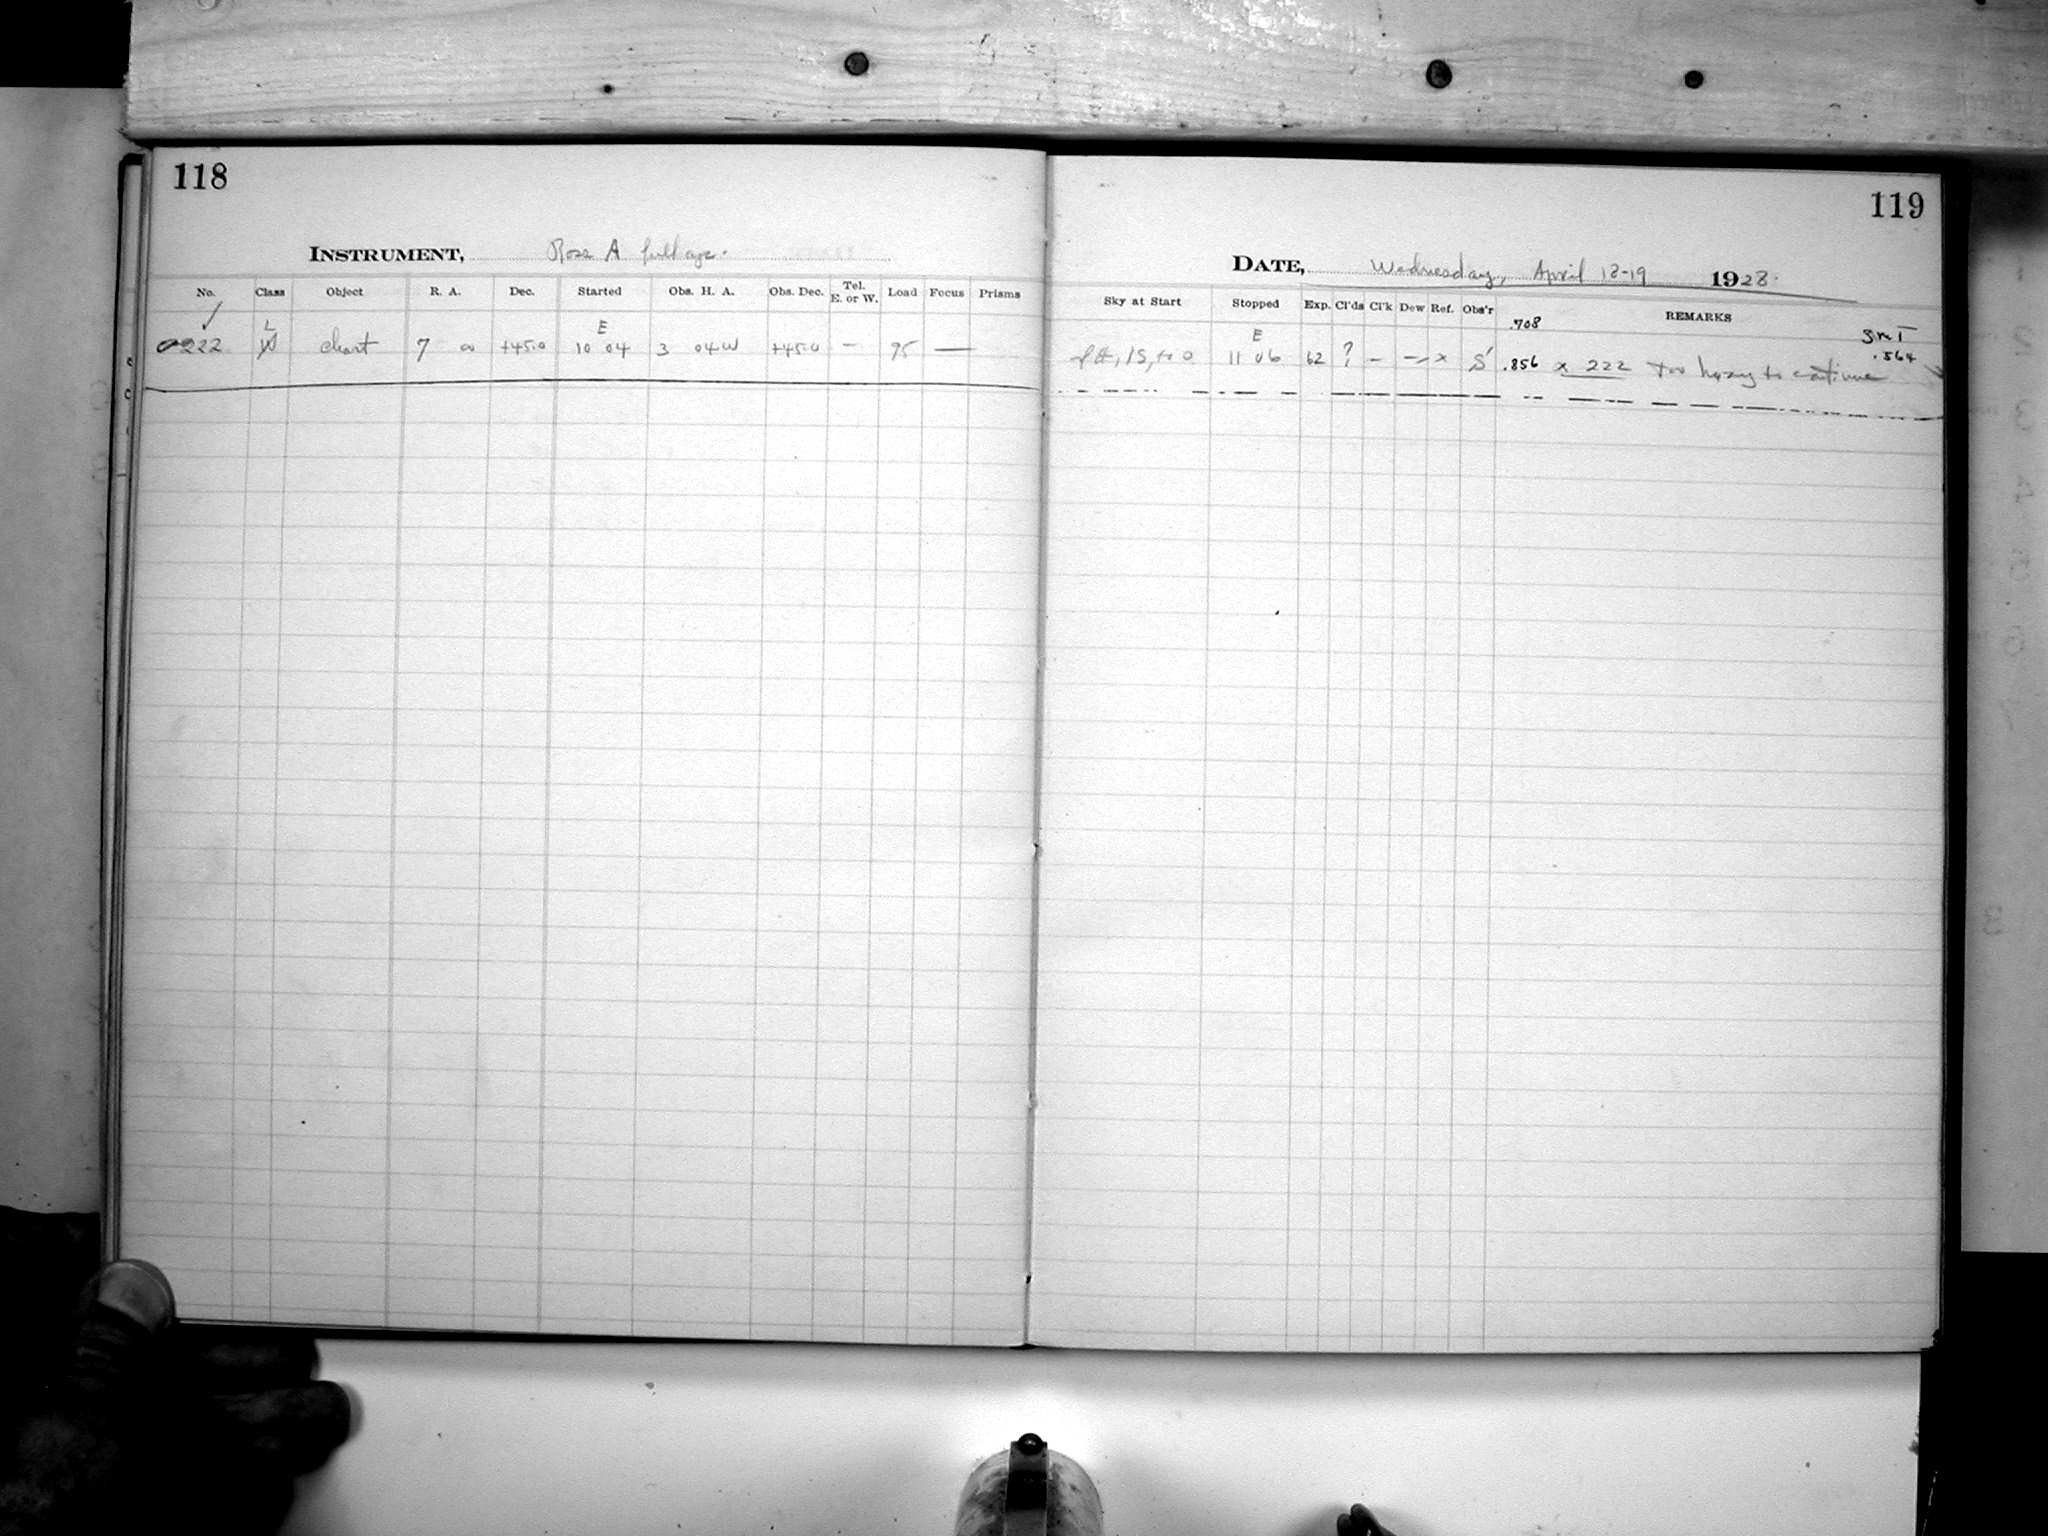 118
INSTRUMENT, Ross A full ap.
No. Class Object R. A. Dec. Started Obs. H. A. Obs. Dec. Tel. E. or W. Load Focus Prisms
✓ L E
222 chart 7 00 +45.0 10 04 3 04W +45.0 — 95 —
119
DATE, Wednesday, April 18-19 1928.
Sky at Start Stopped Exp. Cl'ds Cl'k Dew Ref. Obs'r REMARKS
E .708 SmT
11 06 62 ? — — x S' .856 x 222 too hazy to continue .564